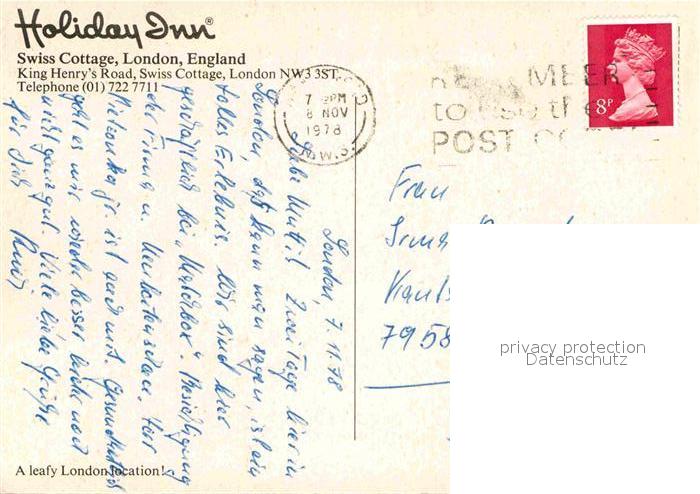 Holiday Inn®
Swiss Cottage, London, England
King Henry's Road, Swiss Cottage, London NW3 3ST.
Telephone (01) 722 7711
7 PM
8 NOV
1978
N.W.
MBER
to use the
POST CO
8P
London, 7.11.78
Liebe Mutti! Zwei Tage hier in
London, das kann man sagen, ist ein
tolles Erlebnis. Wir sind hier
geschäftlich bei "Matchbox". Besichtigung
der Firma u. Neuheitenschau. Herr
jr. ist auch mit. Gesundheitlich
geht es mir wieder besser, wenn auch
nicht ganz gut. Viele liebe Grüße
für Dich
Frau
Irma
Kants
7958
A leafy London location!
privacy protection
Datenschutz